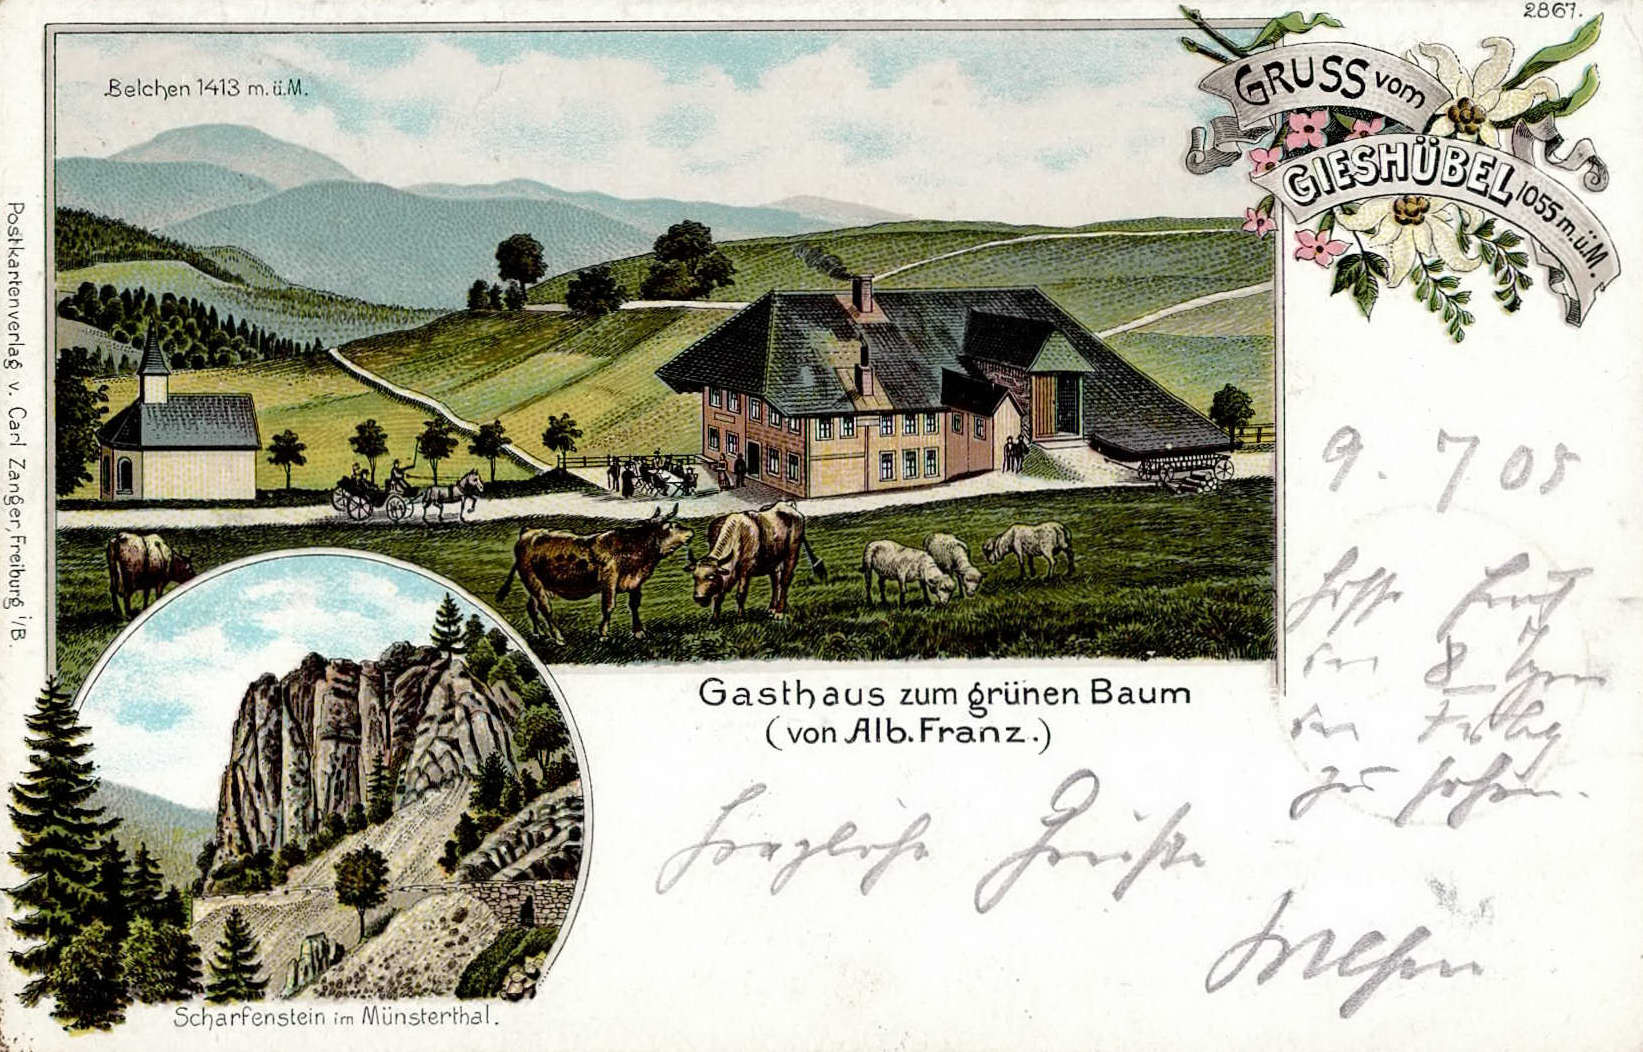 2867.
GRUSS vom
GIESHÜBEL 1055 m.ü.M.
Belchen 1413 m.ü.M.
Postkartenverlag v. Carl Zanger, Freiburg i/B.
Gasthaus zum grünen Baum
(von Alb. Franz.)
Scharfenstein im Münsterthal.
9. 7 05
8
zu
Herzliche Grüße